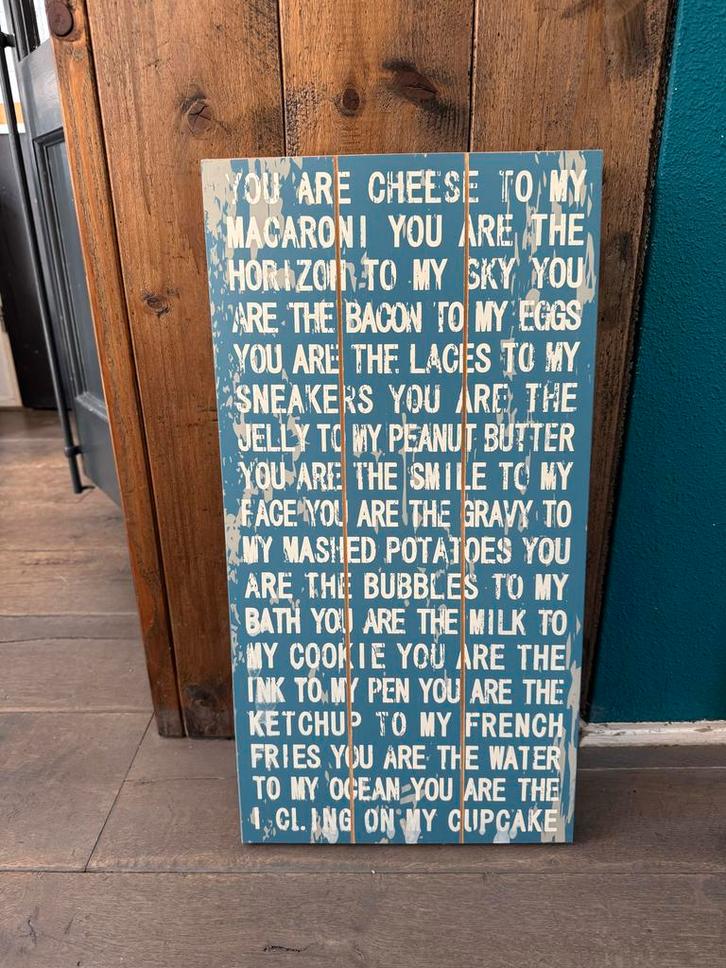 YOU ARE CHEESE TO MY
MACARONI YOU ARE THE
HORIZON TO MY SKY YOU
ARE THE BACON TO MY EGGS
YOU ARE THE LACES TO MY
SNEAKERS YOU ARE THE
JELLY TO MY PEANUT BUTTER
YOU ARE THE SMILE TO MY
FACE YOU ARE THE GRAVY TO
MY MASHED POTATOES YOU
ARE THE BUBBLES TO MY
BATH YOU ARE THE MILK TO
MY COOKIE YOU ARE THE
INK TO MY PEN YOU ARE THE
KETCHUP TO MY FRENCH
FRIES YOU ARE THE WATER
TO MY OCEAN YOU ARE THE
ICING ON MY CUPCAKE